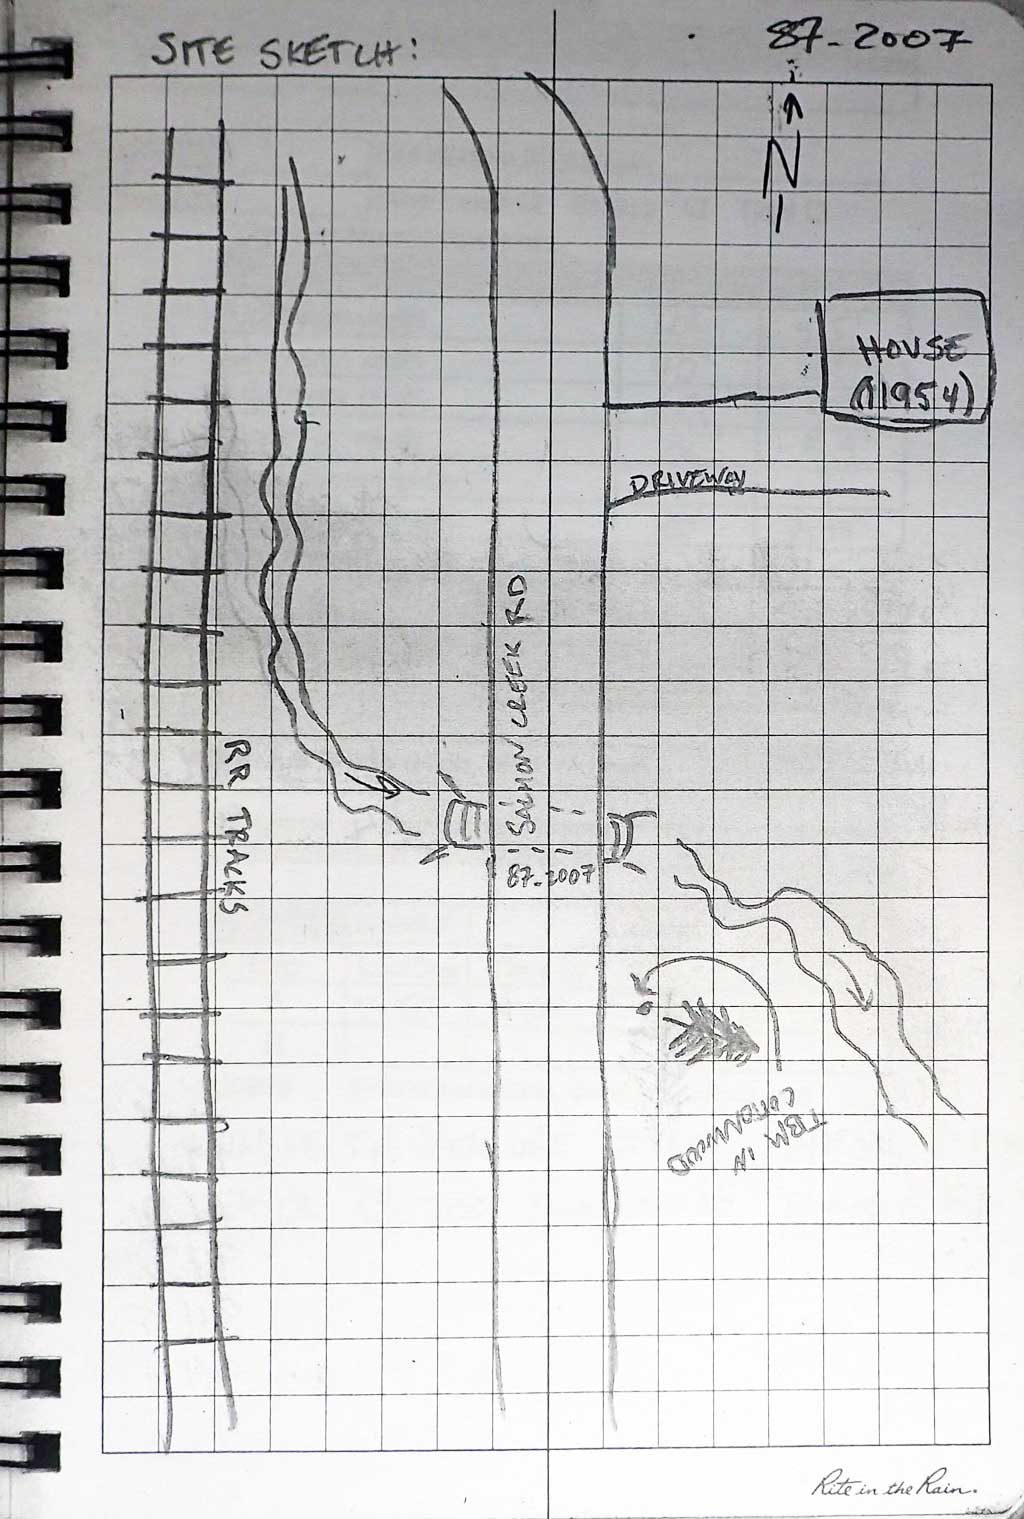 SITE SKETCH:
87-2007
N
HOUSE
(11954)
DRIVEWAY
SALMON CREEK RD
RR TRACKS
87-2007
TBM
IN
COTTONWOOD
Rite in the Rain.